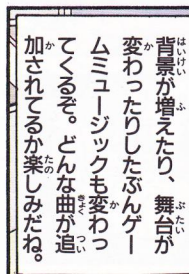 背景が増えたり、舞台が
変わったりしたぶんゲー
ムミュージックも変わっ
てくるぞ。どんな曲が追
加されてるか楽しみだね。